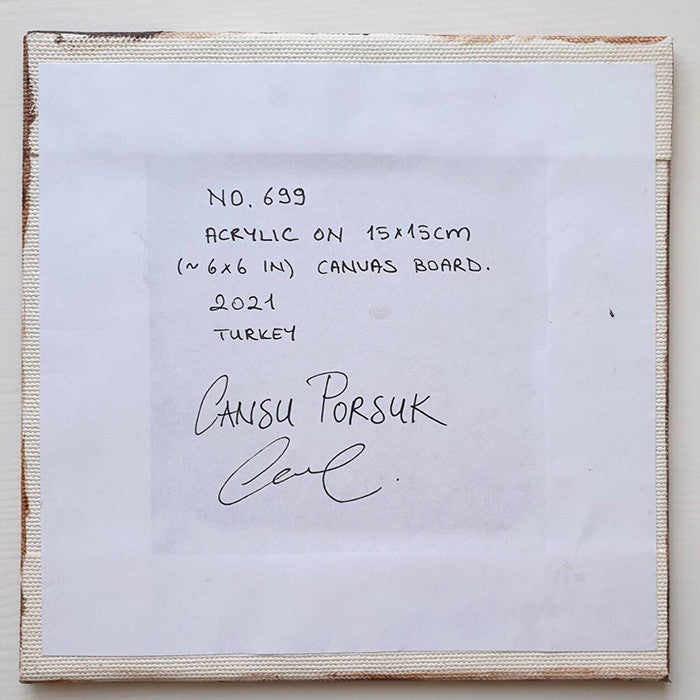 NO. 699
ACRYLIC ON 15x15cm
(~ 6x6 IN) CANVAS BOARD.
2021
TURKEY
CANSU PORSUK